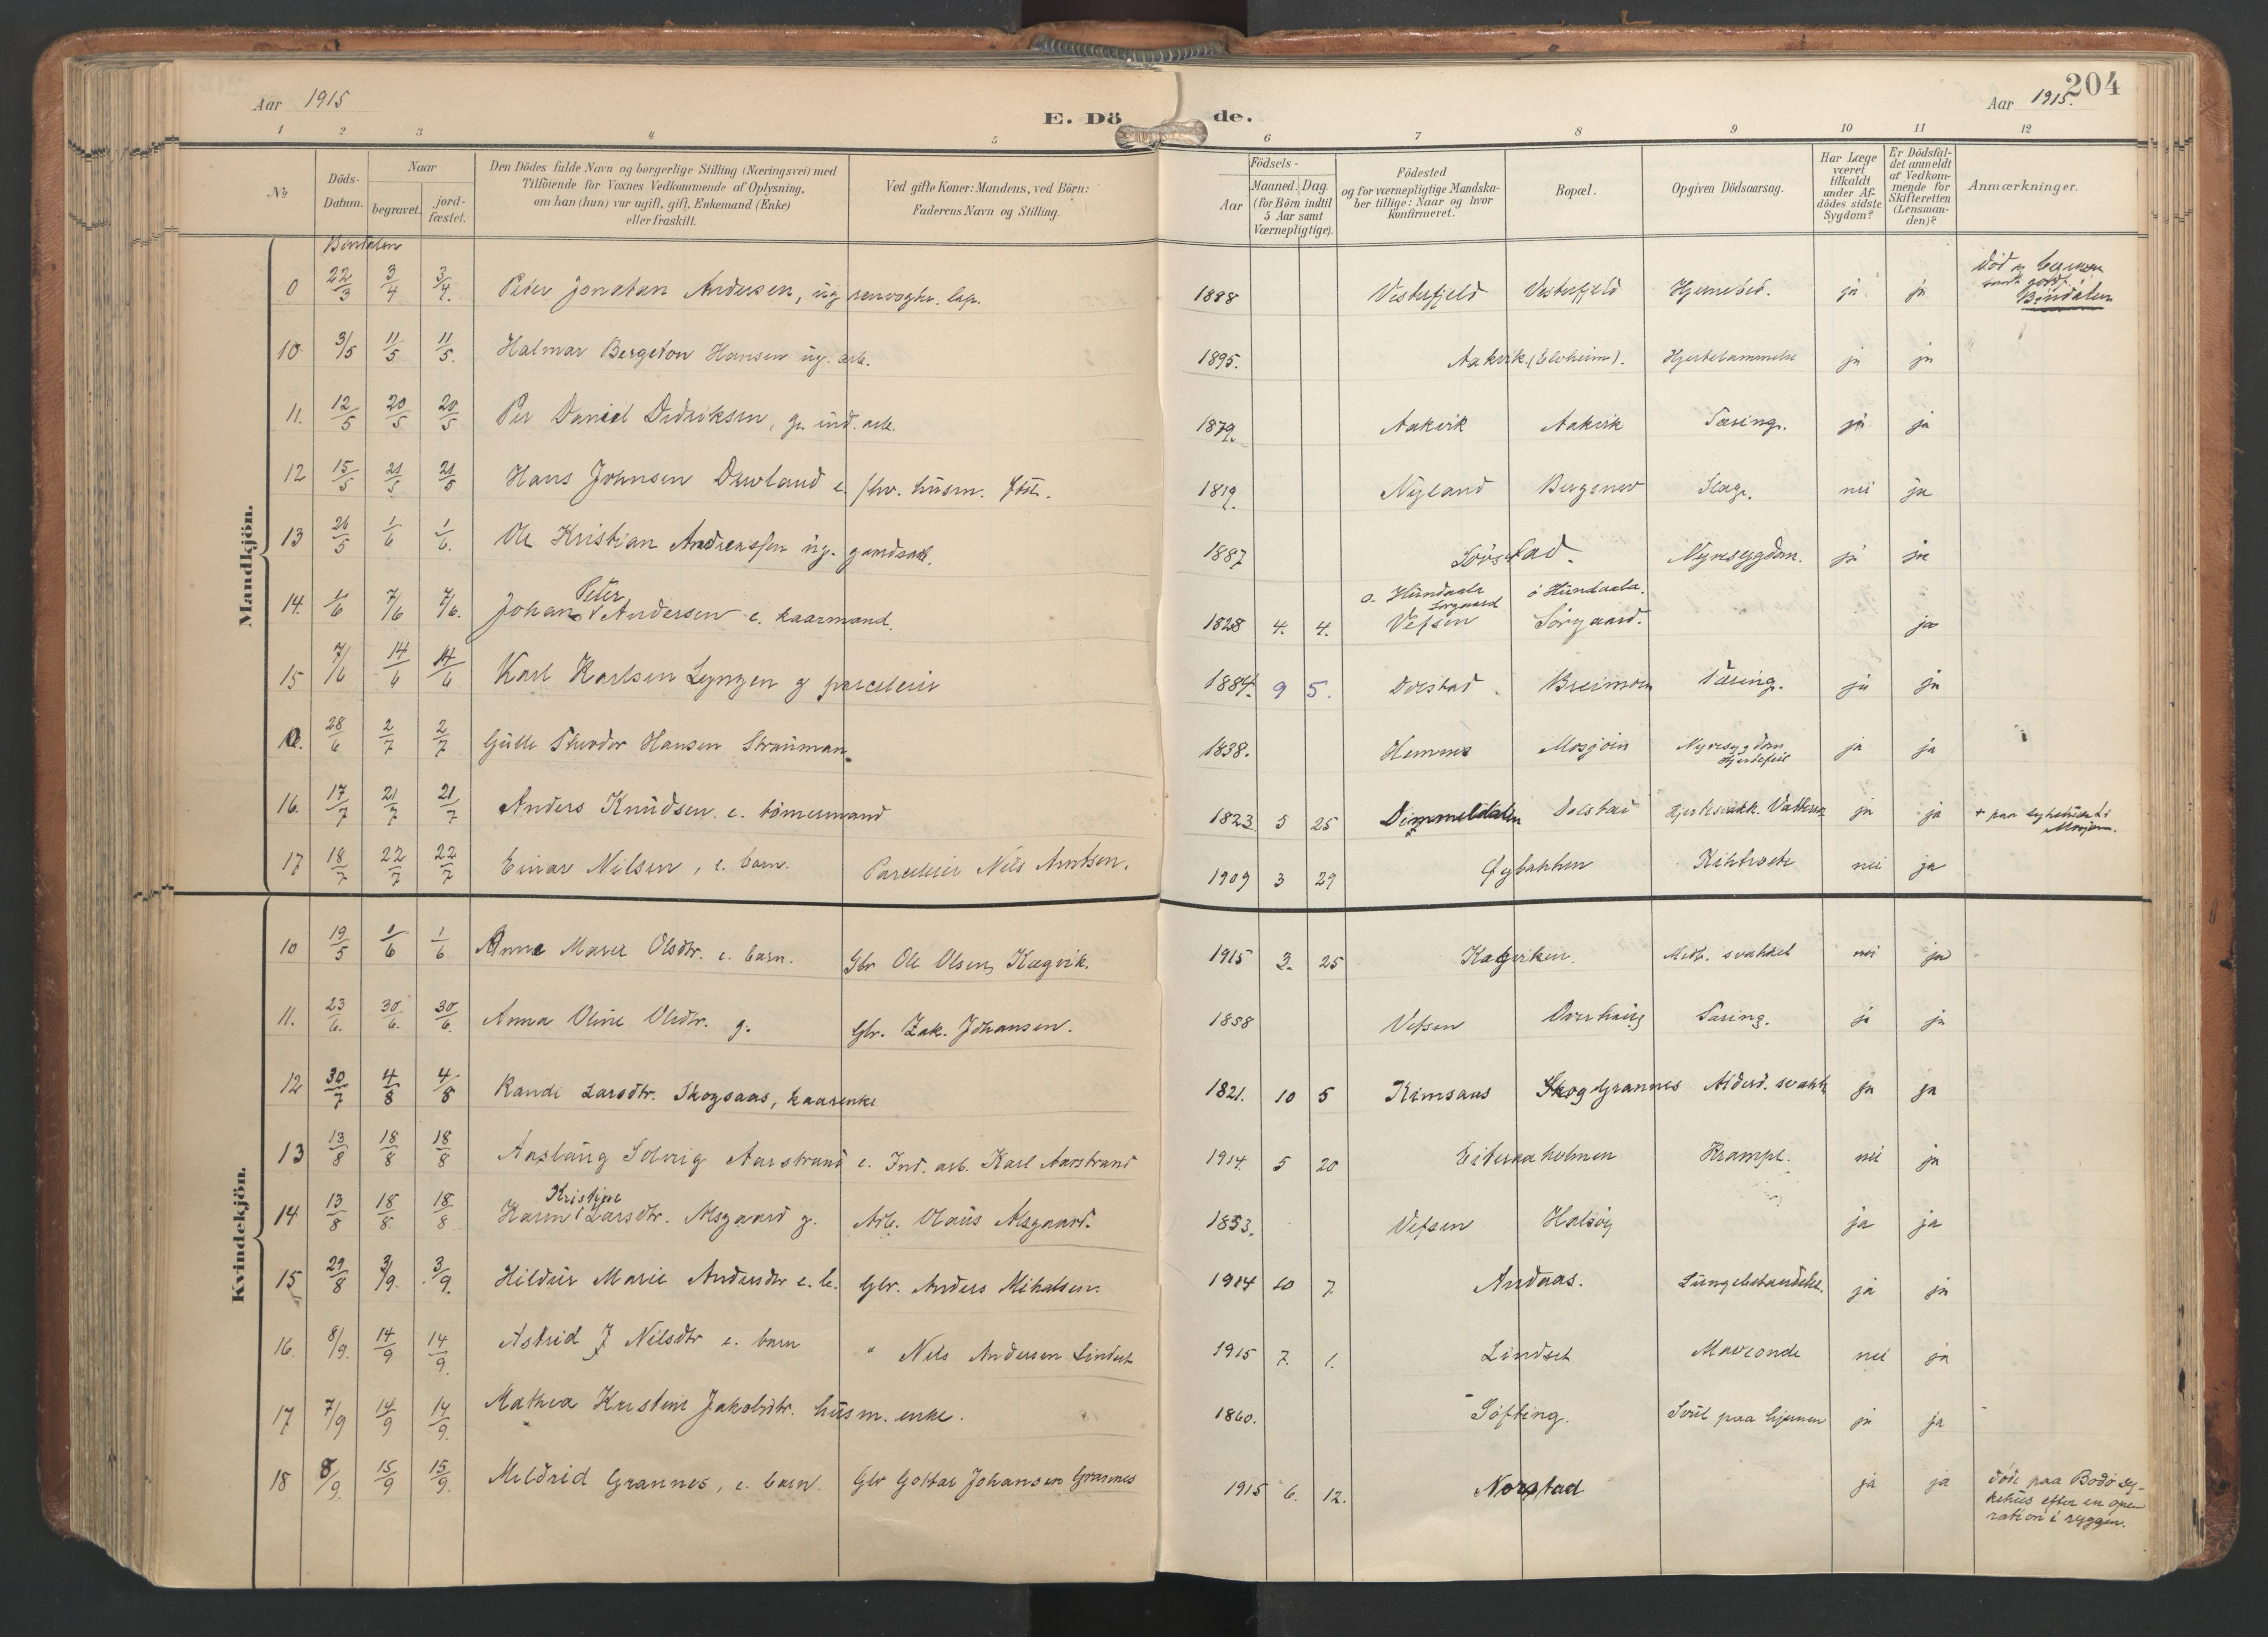 204
Aar 1915
E. Dö de.
Aar 1915.
1 2 3 4 5 6 7 8 9 10 11 12
No
Döds-Datum.
Naar
begravet.
jord-fæstet.
Den Dödes fulde Navn og borgerlige Stilling (Næringsvei) med
Tilföiende for Voxnes Vedkommende af Oplysning,
om han (hun) var ugift, gift, Enkemand (Enke)
eller fraskilt.
Ved gifte Koner: Mandens, ved Börn:
Faderens Navn og Stilling.
Födsels-
Aar
Maaned. Dag.
(for Börn indtil
5 Aar samt
Værnepligtige).
Födested
og for værnepligtige Mandska-
ber tillige: Naar og hvor
konfirmeret.
Bopæl.
Opgiven Dödsaarsag.
Har Læge
været
tilkaldt
under Af-
dödes sidste
Sygdom?
Er Dödsfal-
det anmeldt
af Vedkom-
mende for
Skifteretten
(Lensman-
den)?
Anmærkninger.
Mandkjön.
Bindalen
0 22/3 3/4 3/4. Peter Jonatan Andersen, ug 1888 Vesterfjeld Vesterfjeld ja ja Död og
Bindalen
10 3/5 11/5 11/5. Halmar Bergeton Hansen ug. arb. 1895. Aakvik (Elvheim). ja ja
11. 12/5 20/5 20/5 Per Daniel Didriksen, g. ind. arb. 1879. Aakvik Aakvik Tæring. ja ja
12 15/5 21/5 21/5 Hans Johnsen e. husm. 1819. Nyland Slag. nei ja
13 26/5 1/6 1/6. Ole Kristian Anderssen ug. gaardsarb. 1887 Nyresygdom. ja ja
14. 1/6 7/6 7/6. Johan Peter Andersen e. kaarmand. 1828 4. 4. Vefsen Sörgaard. ja
15 7/6 14/6 14/6 Karl Karlsen Lyngen g parceleier 1884. 9 5. Dolstad Breimoen Tæring. ja ja
0. 28/6 2/7 2/7 Theodor Hansen Strauman. 1838. Hemnes Mosjöen Nyresygdom
Hjertefeil ja ja
16. 17/7 21/7 21/7 Anders Knudsen e. tömermand 1823. 5 25 Dimmeldalen Dolstad ja ja + paa sykehuset i
Mosjöen.
17 18/7 22/7 22/7 Einar Nilsen, e. barn. Parceleier Nils Arntsen. 1909 3 29 Kikhoste nei ja
Kvindekjön.
10 19/5 1/6 1/6 Anna Marie Olsdtr. e. barn. Gbr Ole Olsen, Kagvik. 1915 3. 25 Kagviken. Medf. svakhet nei ja
11. 23/6. 30/6. 30/6. Anna Oline Olsdtr. g. Gbr. Zak. Johansen. 1858 Vefsen Tæring. ja ja
12 30/7 4/8 4/8 Randi Larsdtr. Skogsaas, kaarenke 1821. 10 5 Kimsaas Skog Grannes Alderd. svakh ja ja
13 13/8 18/8 18/8 Aaslaug Solveig Aarstrand e. Ind. arb. Karl Aarstrand 1914. 5 20 Eiteraaholmen Krampe. nei ja
14 13/8 18/8 18/8 Karen Kristine Larsdtr. Alsgaard g. Arb. Olaus Alsgaard. 1853. Vefsen Halsöy ja ja
15 29/8 3/9. 3/9. Hildur Marie Andersdtr e. b. Gbr. Anders Mikalsen. 1914 10 7. Andaas. Lungebetændelse. ja ja
16. 8/9. 14/9 14/9. Astrid J Nilsdtr e. barn " Nils Andersen Lindset 1915 7. 1. Lindset Maveonde nei ja
17 7/9 14/9 14/9. Mathea Kristine Jakobsdtr. husm. enke. 1860. Söfting. Svul paa hjernen ja ja
18 8/9. 15/9 15/9. Mildrid Grannes, e. barn. Gbr Johansen Grannes 1915 6. 12. Norstad ja ja döde paa Bodö sy-
kehus efter en ope-
ration i ryggen.